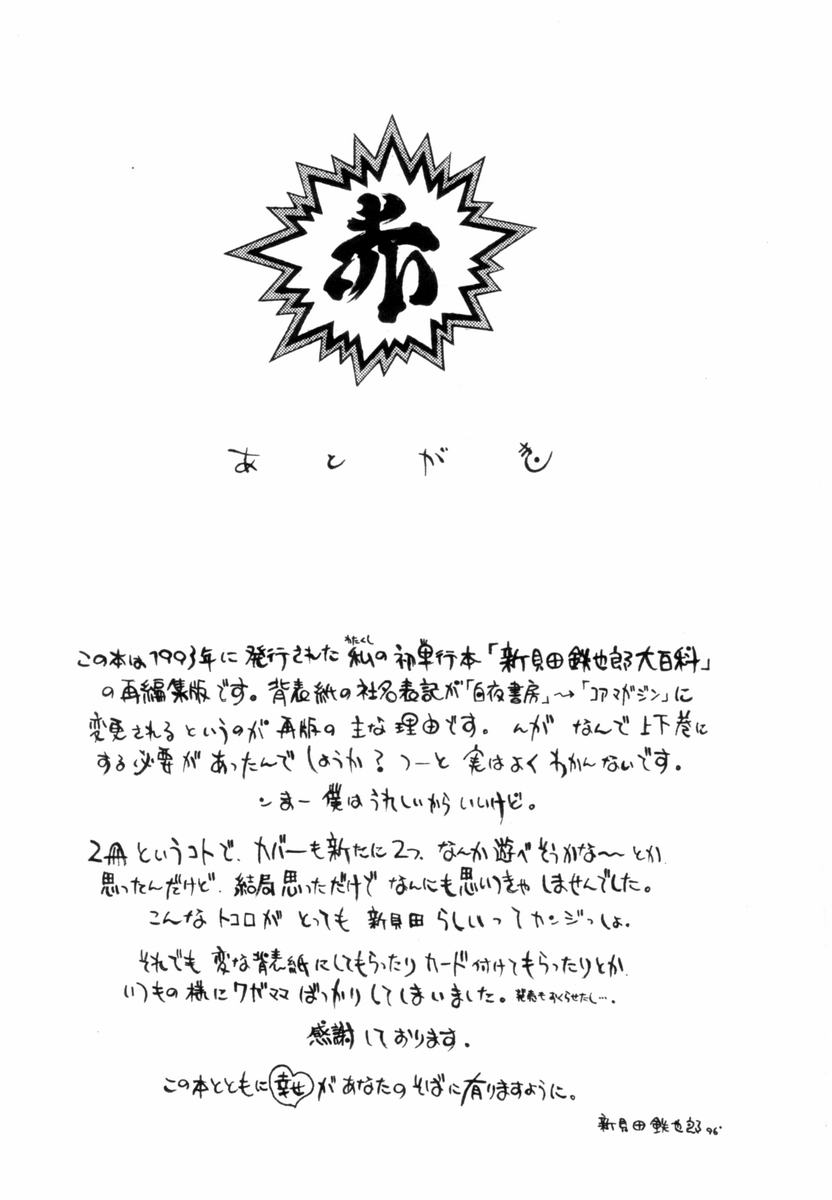 赤
あとがき
この本は1993年に発行された私の初単行本「新貝田鉄也郎大百科」
わたくし
の再編集版です。背表紙の社名表記が「白夜書房」→「コアマガジン」に
変更されるというのが再版の主な理由です。んがなんで上下巻に
する必要があったんでしょうか?つーと実はよくわかんないです。
ンまー僕はうれしいからいいけど。
2冊というコトで、カバーも新たに2つ、なんか遊べそうかな〜とか
思ったんだけど、結局思っただけでなんにも思いつきゃしませんでした。
こんなトコロがとっても新貝田らしいってカンジっしょ。
それでも変な背表紙にしてもらったりカード付けてもらったりとか
いつもの様にワガママばっかりしてしまいました。発売もおくらせたし…。
感謝しております。
この本とともに幸せがあなたのそばに有りますように。
新貝田鉄也郎96'